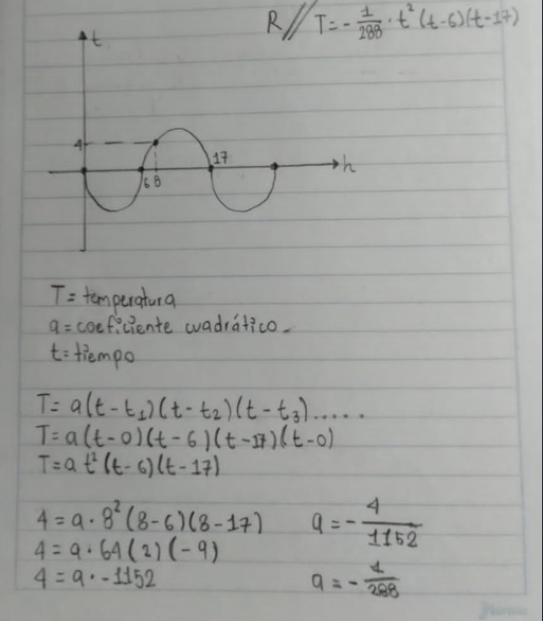 R// T = - 1/288 · t² (t-6)(t-17)
t
4
17
h
6 8
T = temperatura
a = coeficiente cuadrático.
t = tiempo
T = a(t-t₁)(t-t₂)(t-t₃).....
T = a(t-0)(t-6)(t-17)(t-0)
T = a t² (t-6)(t-17)
4 = a · 8² (8-6)(8-17) a = - 4/1152
4 = a · 64(2)(-9)
4 = a · -1152 a = - 1/288